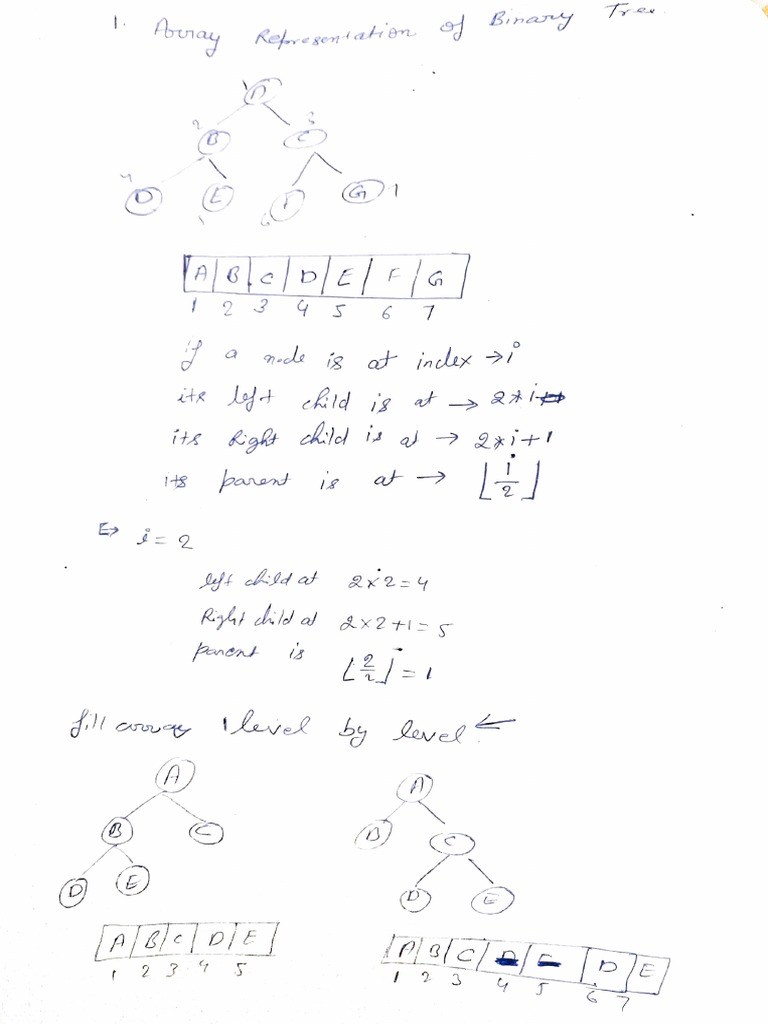 1. Array Representation of Binary Tree
A
2 3
B C
4
D E F G
6
A B C D E F G
1 2 3 4 5 6 7
if a node is at index → i
its left child is at → 2*i
its Right child is at → 2*i+1
its parent is at → ⌊i/2⌋
i = 2
left child at 2×2=4
Right child at 2×2+1=5
parent is ⌊2/2⌋=1
fill array level by level ←
A A
B C B C
D E D E
A B C D E A B C D E
1 2 3 4 5 1 2 3 4 5 6 7